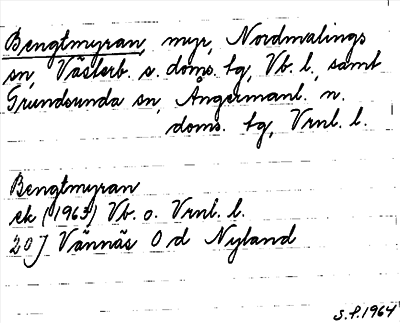 Bengtmyran, myr, Nordmalings
sn, Västerb. s. doms. tg, Vb. l., samt
Grundsunda sn, Ångermanl. n.
doms. tg, Vrnl. l.
Bengtmyran
ek (1963) Vb. o. Vrnl. l.
20J Vännäs Od Nyland
S.P. 1964